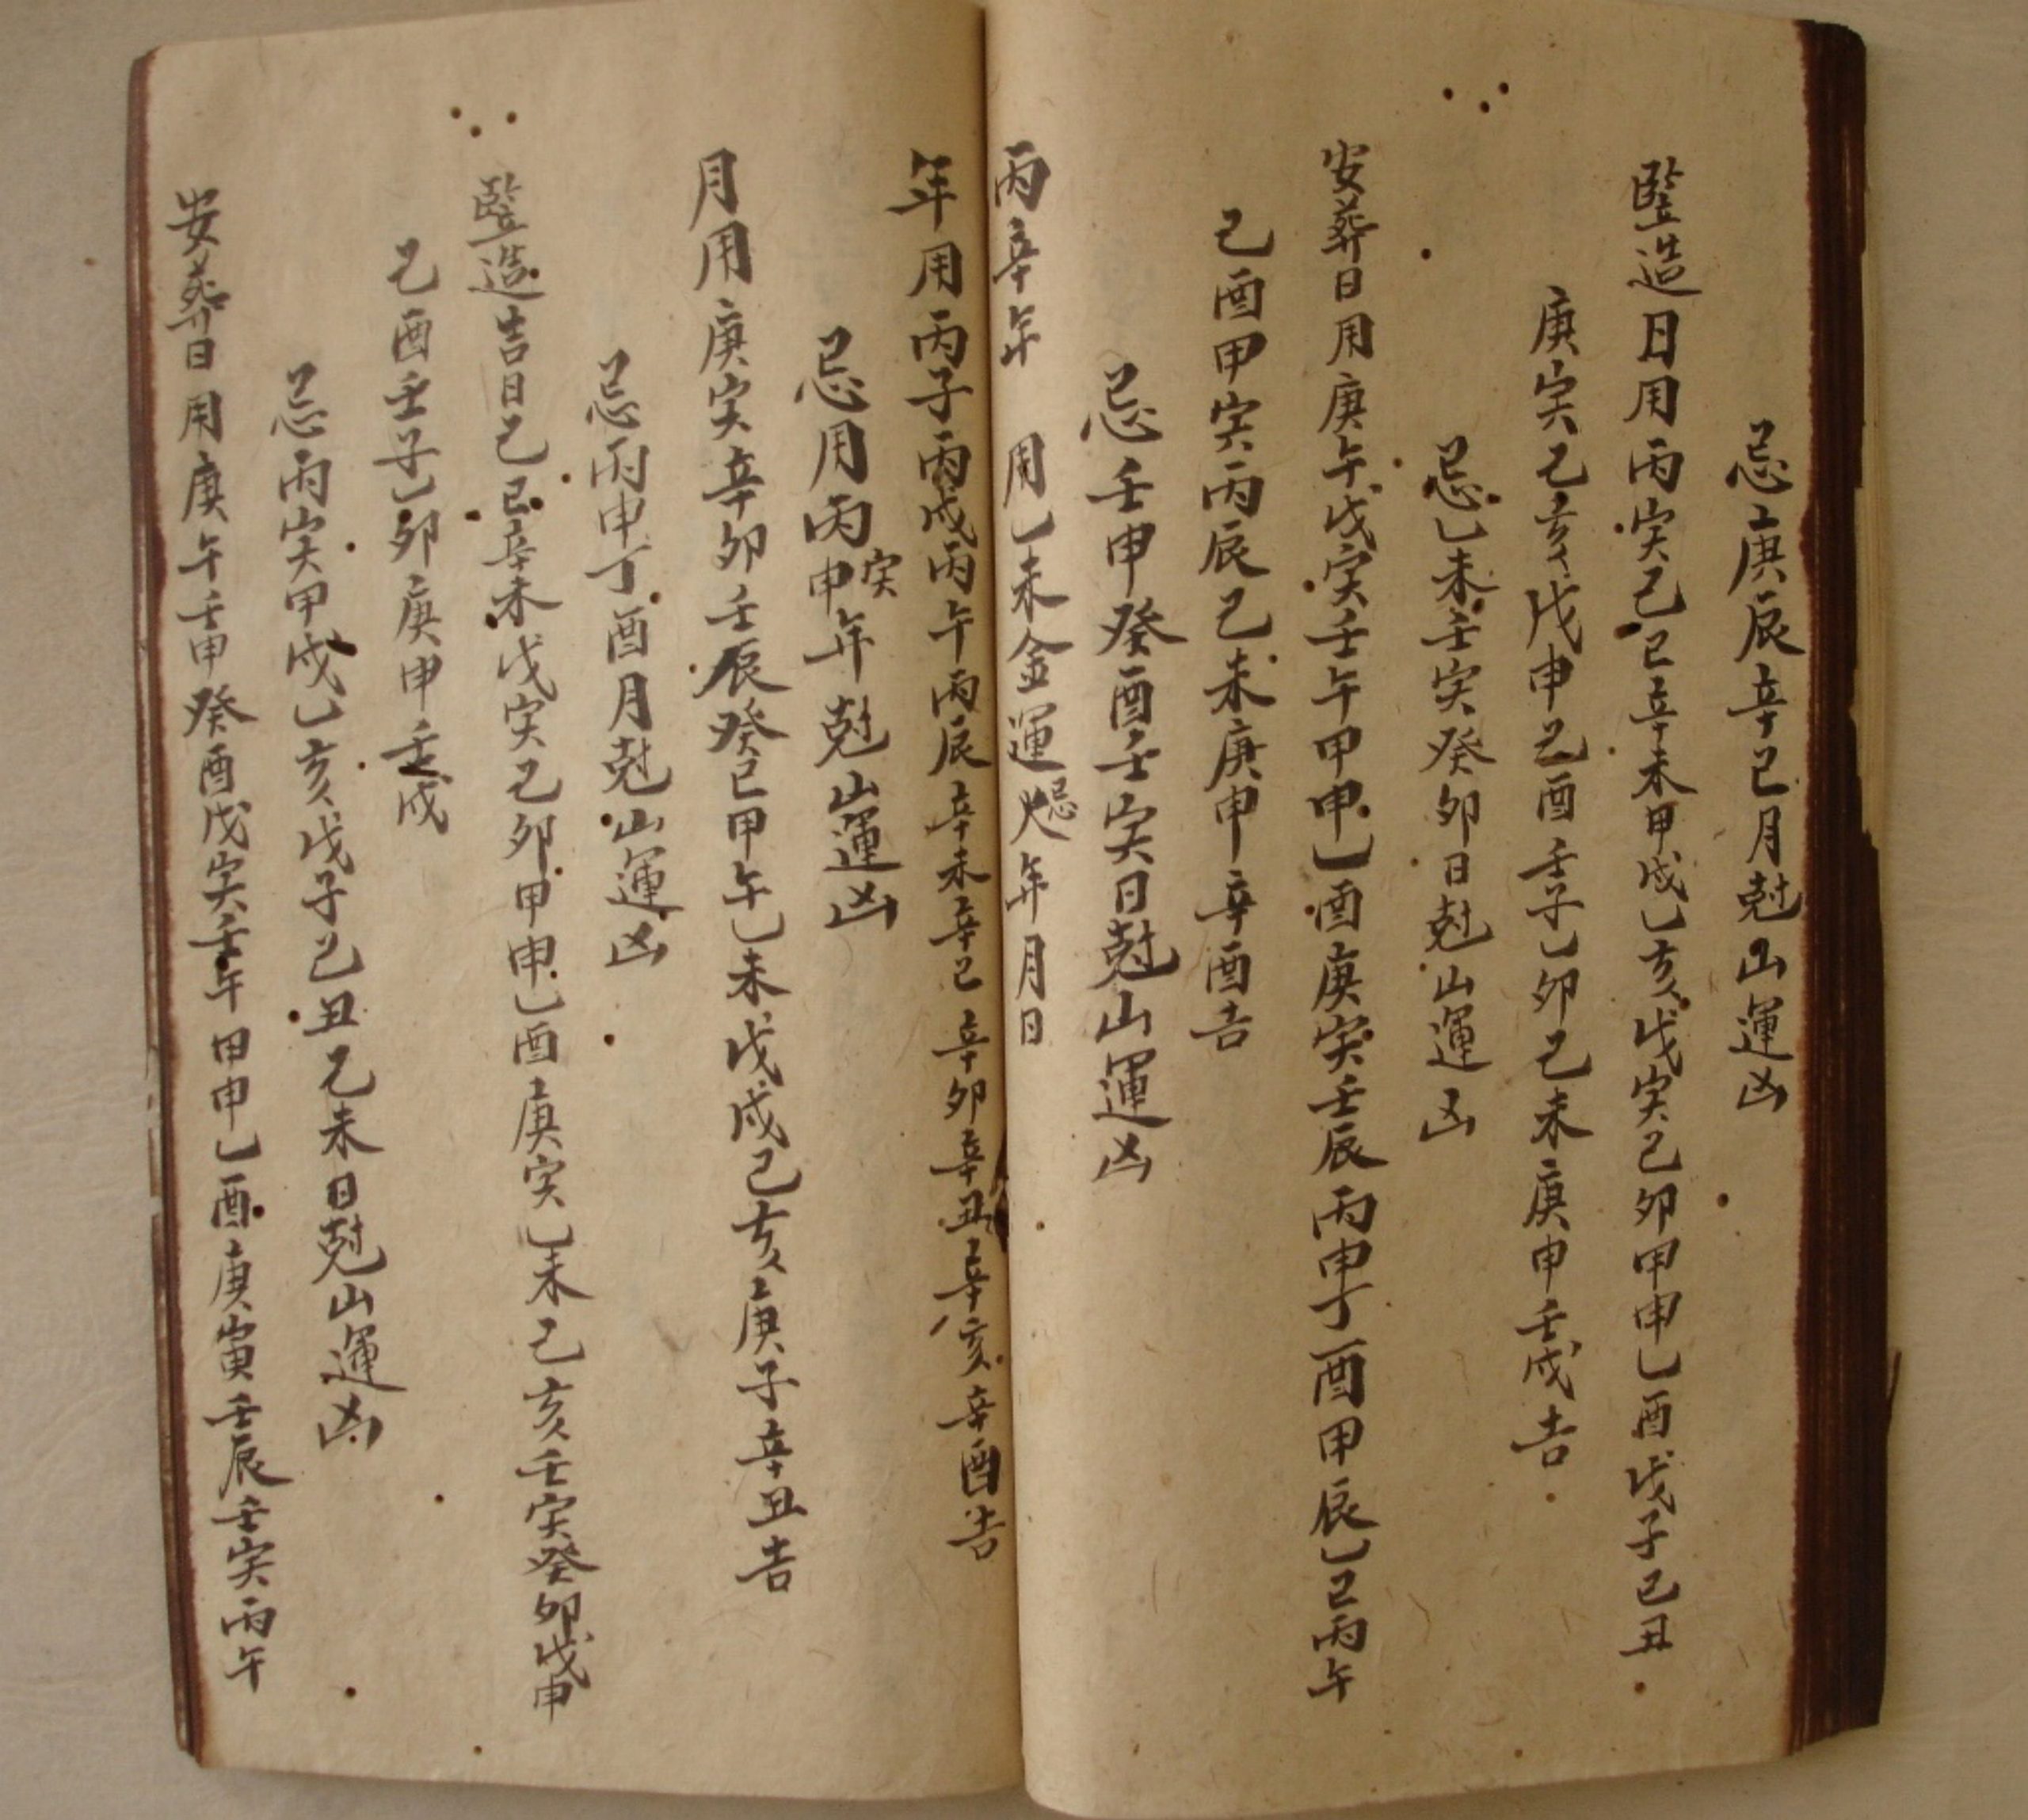 忌庚辰辛巳月尅山運凶
竪造日用丙寅己巳辛未甲戌乙亥戊寅己卯甲申乙酉戊子己丑
庚寅乙亥戊申己酉壬子乙卯己未庚申壬戌吉
忌乙未壬寅癸卯日尅山運凶
安葬日用庚午戊寅壬午甲申乙酉庚寅壬辰丙申丁酉甲辰乙巳丙午
己酉甲寅丙辰己未庚申辛酉吉
忌壬申癸酉壬寅日尅山運凶
丙辛年 用乙未金運忌火年月日
年用丙子丙戌丙午丙辰辛未辛巳辛卯辛丑辛亥辛酉吉
忌月丙寅申年尅山運凶
月用庚寅辛卯壬辰癸巳甲午乙未戊戌己亥庚子辛丑吉
忌丙申丁酉月尅山運凶
竪造吉日己巳辛未戊寅己卯甲申乙酉庚寅乙未己亥壬寅癸卯戊申
己酉壬子乙卯庚申壬戌
忌丙寅甲戌乙亥戊子己丑己未日尅山運凶
安葬日用庚午壬申癸酉戊寅壬午甲申乙酉庚寅壬辰壬寅丙午